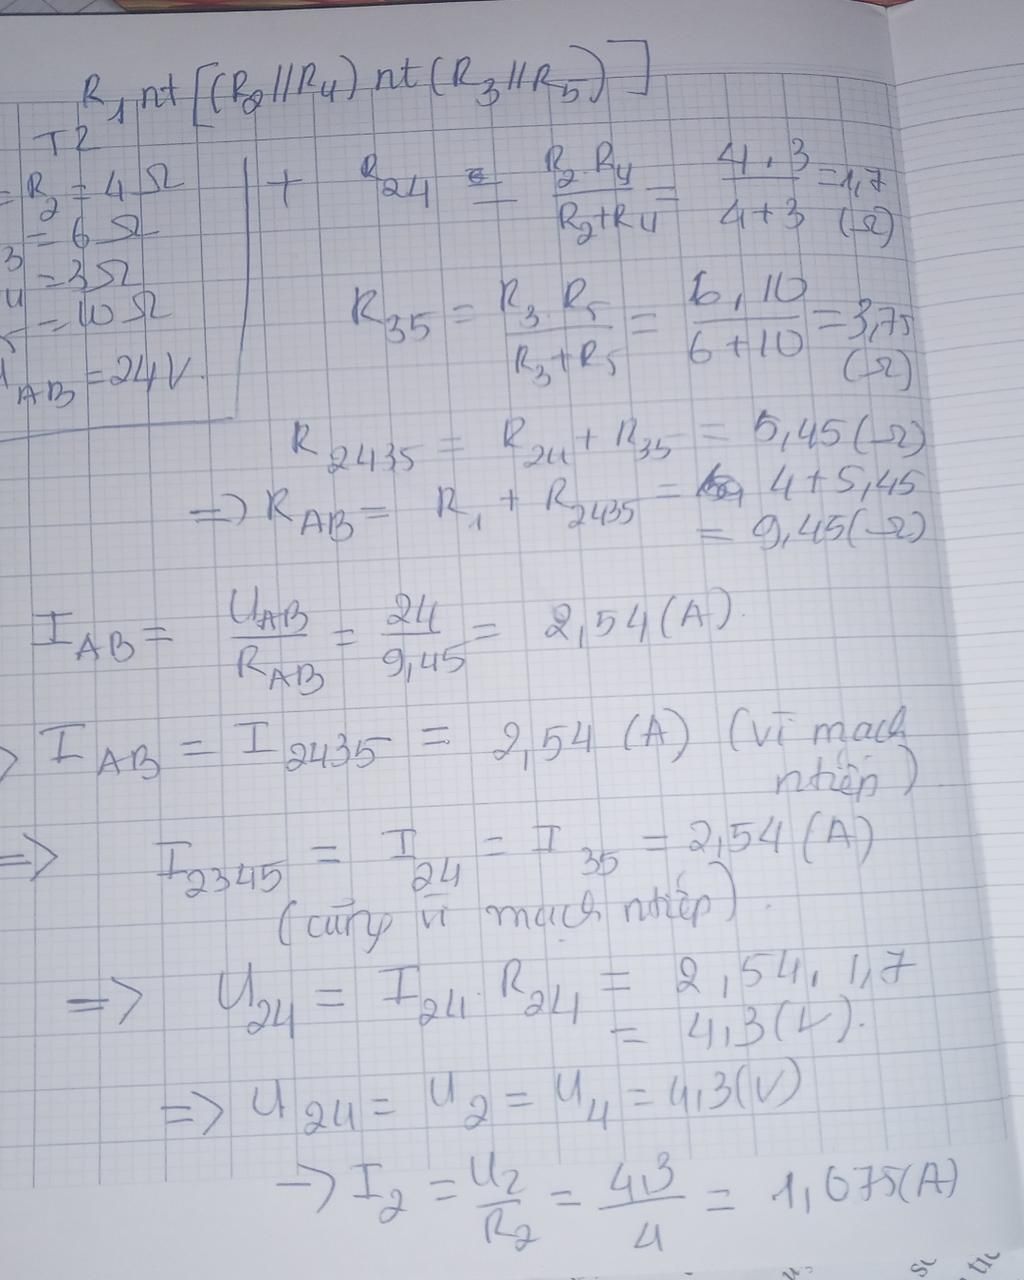 R₁ nt [(R₂//R₄) nt (R₃//R₅)]
TT
= R₂ = 4Ω
3 = 6Ω
4 = 3Ω
5 = 10Ω
AB = 24V.
+ R₂₄ = R₂.R₄/R₂+R₄ = 4.3/4+3 = 1,7 (Ω)
R₃₅ = R₃.R₅/R₃+R₅ = 6.10/6+10 = 3,75 (Ω)
R₂₄₃₅ = R₂₄ + R₃₅ = 5,45 (Ω)
=> R_AB = R₁ + R₂₄₃₅ = 4 + 5,45
= 9,45 (Ω)
I_AB = U_AB/R_AB = 24/9,45 = 2,54 (A).
I_AB = I₂₄₃₅ = 2,54 (A) (vì mạch
ntiếp)
=> I₂₃₄₅ = I₂₄ = I₃₅ = 2,54 (A)
(cũng vì mạch ntiếp).
=> U₂₄ = I₂₄.R₂₄ = 2,54.1,7
= 4,3 (V).
=> U₂₄ = U₂ = U₄ = 4,3 (V)
-> I₂ = U₂/R₂ = 4,3/4 = 1,075 (A)